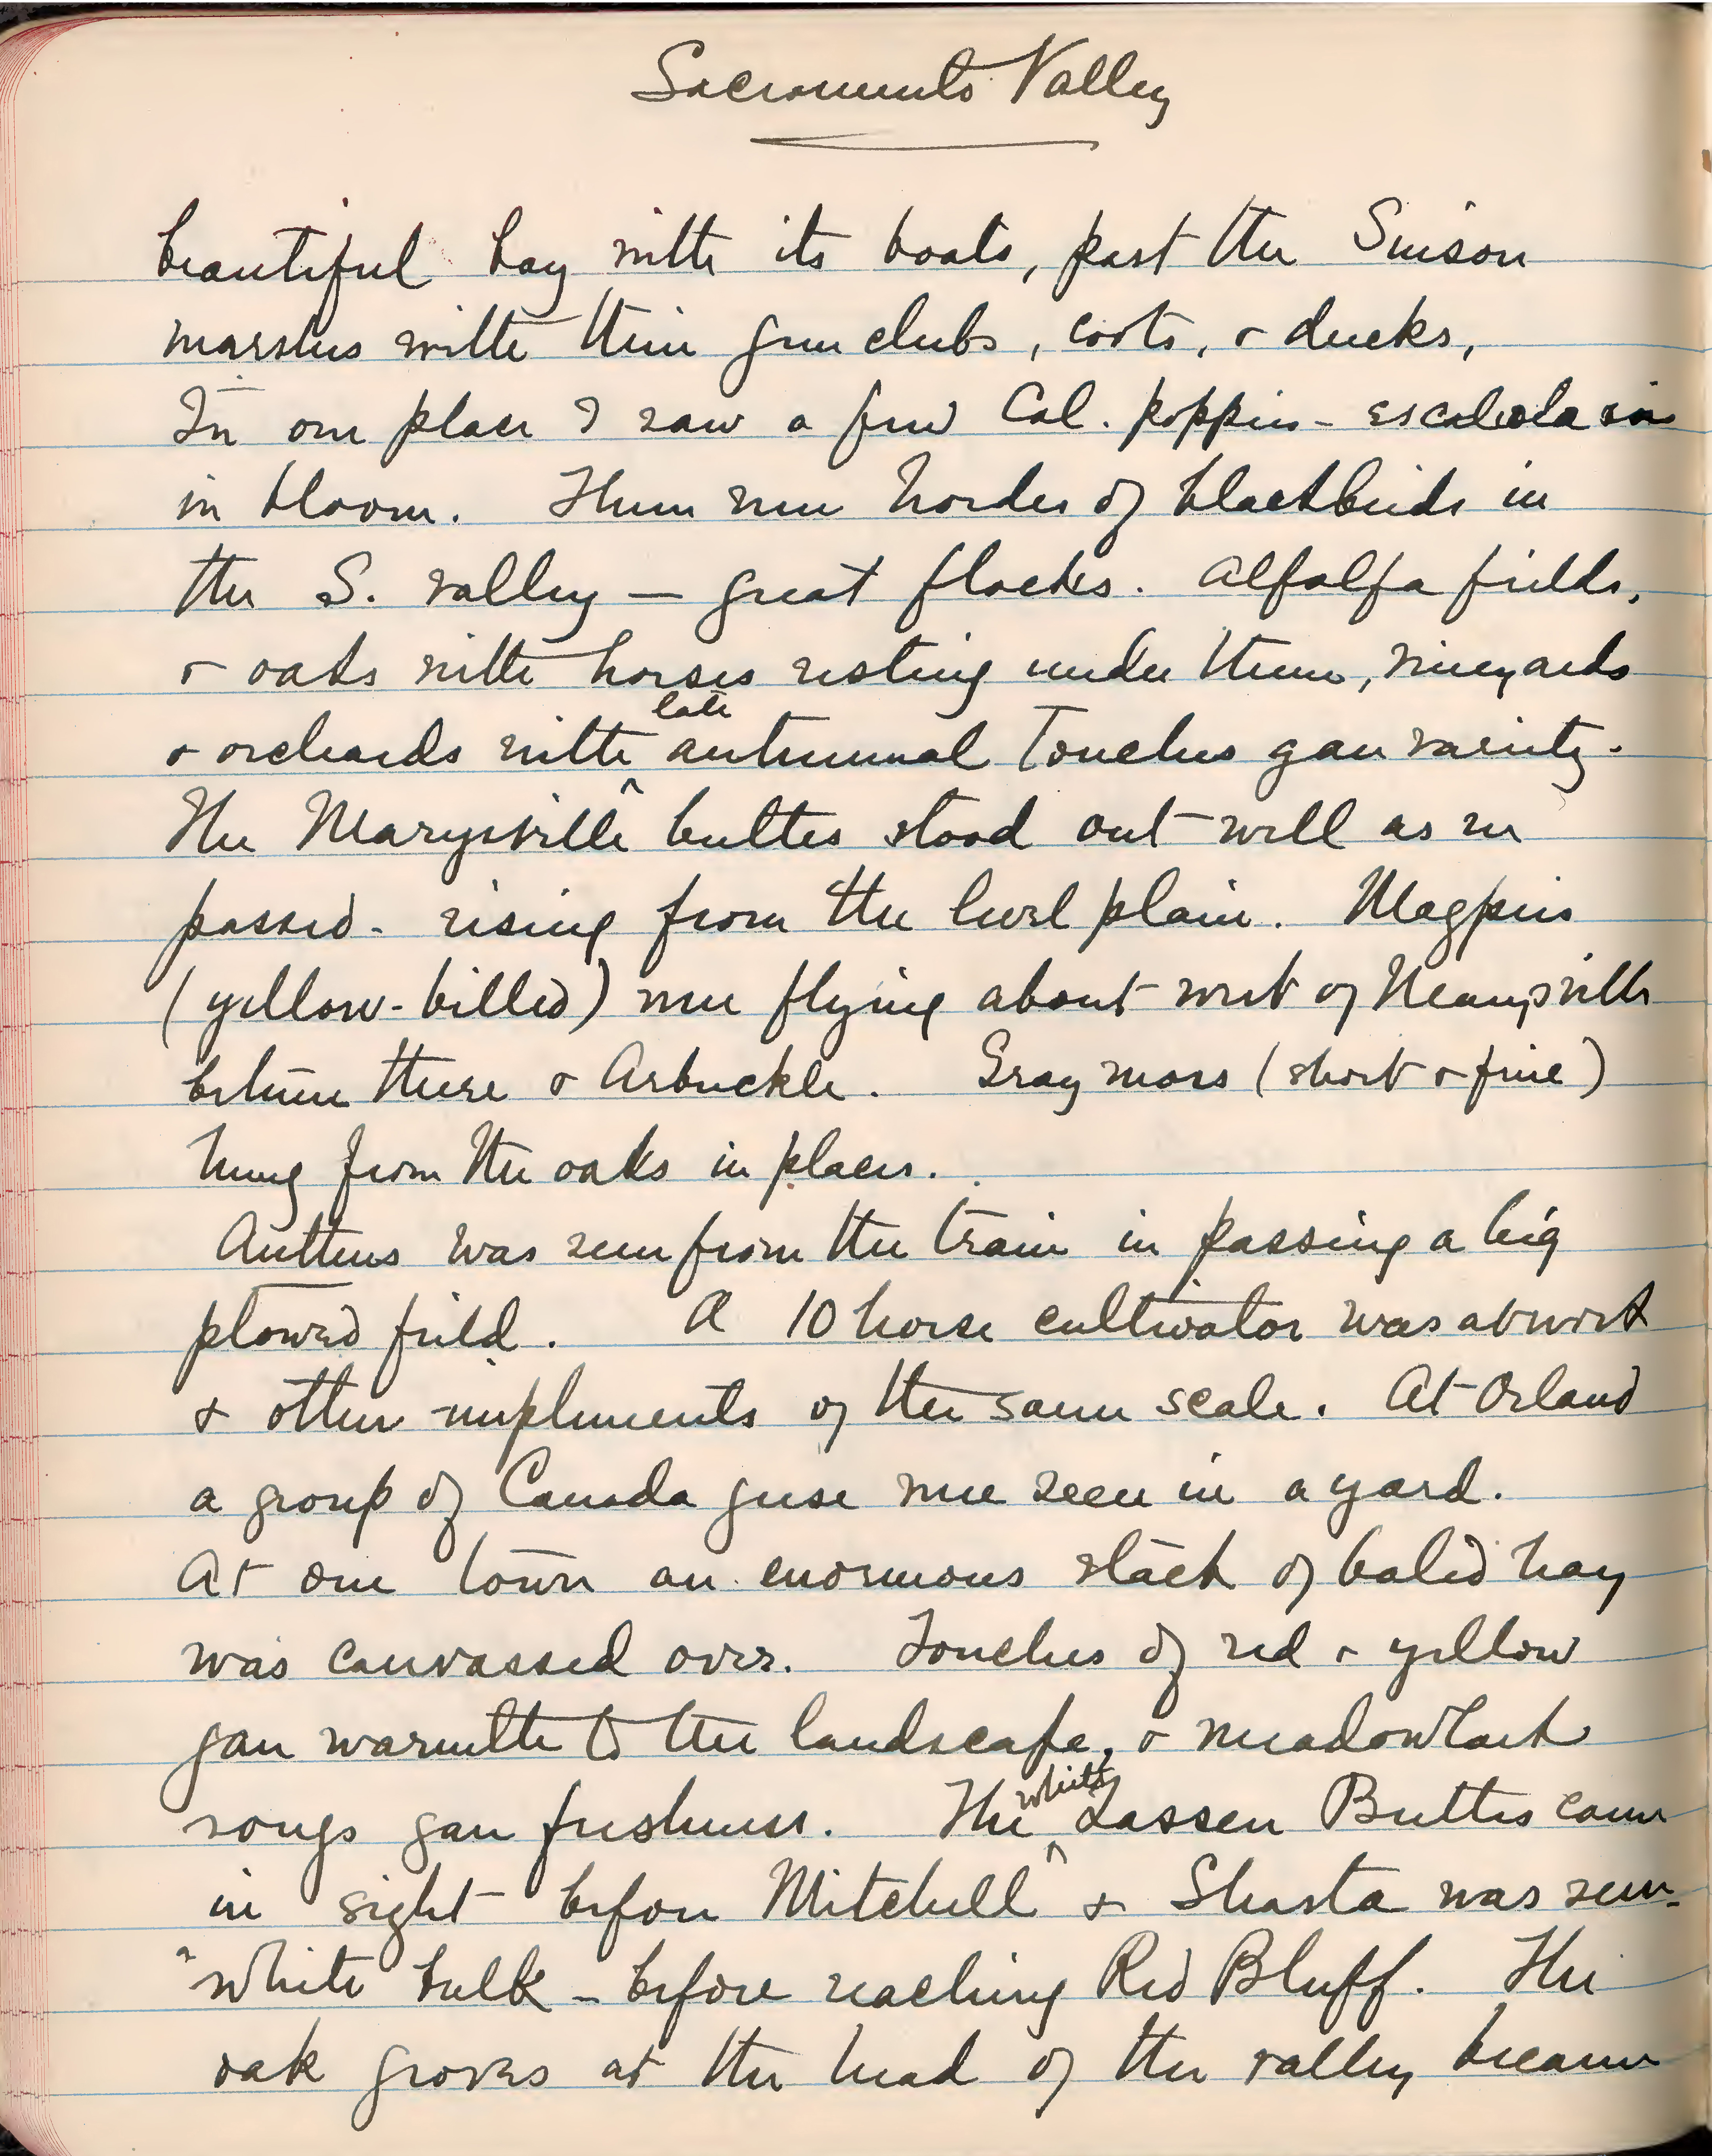 Sacramento Valley
beautiful bay with its boats, past the Suison
marshes with their gun clubs, coots, & ducks,
In one place I saw a few Cal. poppies -
in bloom. There were hordes of blackbirds in
the S. valley — great flocks. Alfalfa fields,
& oaks with horses resting under them, vineyards
& orchards with late autumnal touches gave variety.
The Marysville buttes stood out well as we
passed - rising from the level plain. Magpies
(yellow-billed) were flying about west of Marysville
between there & Arbuckle. Gray moss (short & fine)
hung from the oaks in places.
Anthus was seen from the train in passing a big
plowed field. A 10 horse cultivator was at work
& other implements of the same scale. At Orland
a group of Canada geese were seen in a yard.
At one town an enormous stack of baled hay
was canvassed over. Touches of red & yellow
gave warmth to the landscape, & meadowlark
songs gave freshness. The white Lassen Buttes came
in sight before Mitchell & Shasta was seen -
a white bulk - before reaching Red Bluff. The
oak groves at the head of the valley became